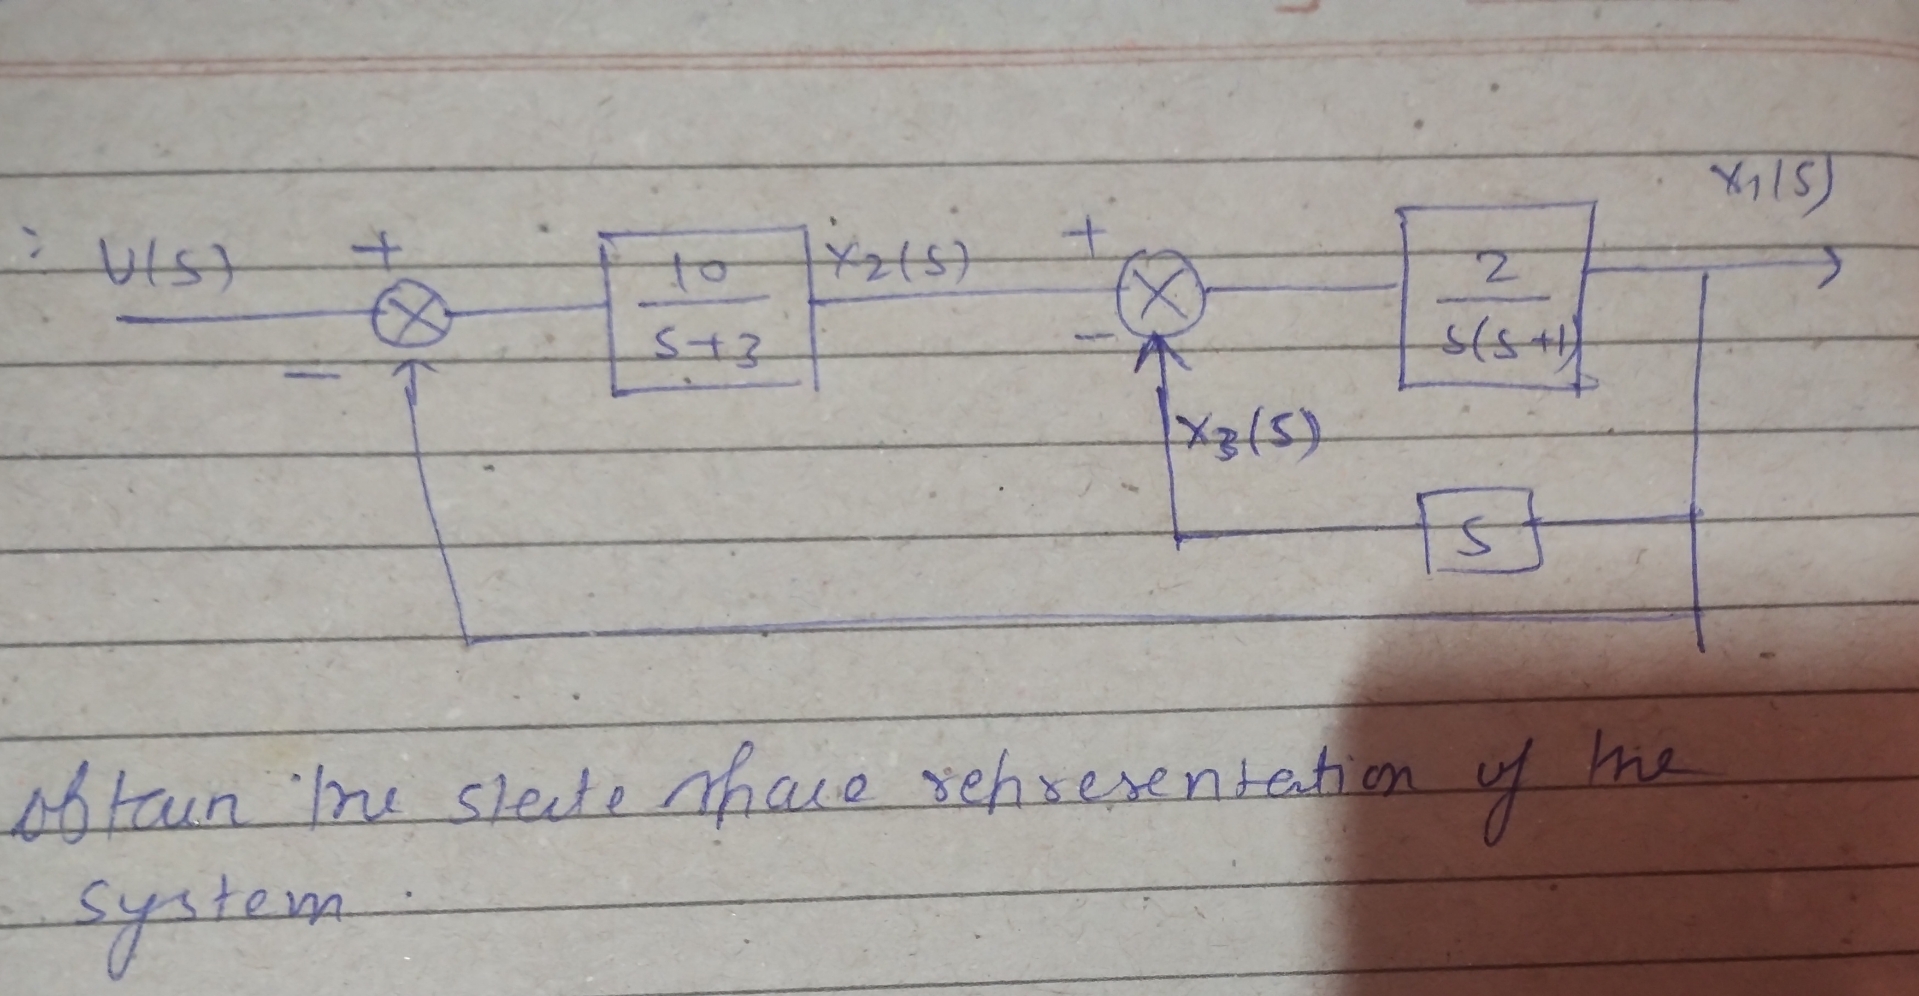 X1(S)
: U(S) + 10 X2(S) + 2
- S+3 - S(S+1)
X3(S)
S
obtain the state space representation of the
system.